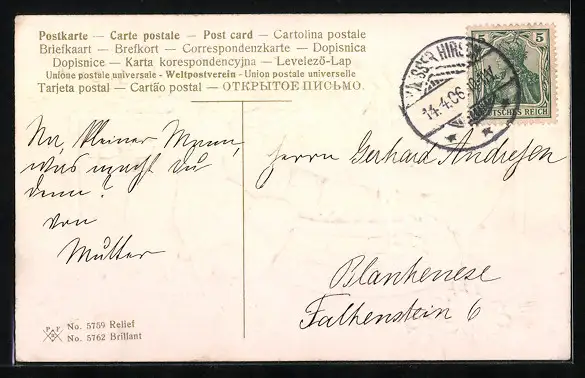 Postkarte — Carte postale — Post card — Cartolina postale
Briefkaart — Brefkort — Correspondenzkarte — Dopisnica
Dopisnice — Karta korespondencyjna — Levelező-Lap
Unione postale universale - Weltpostverein - Union postale universelle
Tarjeta postal — Cartão postal — ОТКРЫТОЕ ПИСЬМО.
5 5
DEUTSCHES REICH
WEISSER HIRSCH
14.4.06
Na, kleiner Mann,
was macht du
denn?
von
Mutter
Herrn Gerhard Andresen
Blankenese
Falkenstein 6
No. 5759 Relief
No. 5762 Brillant